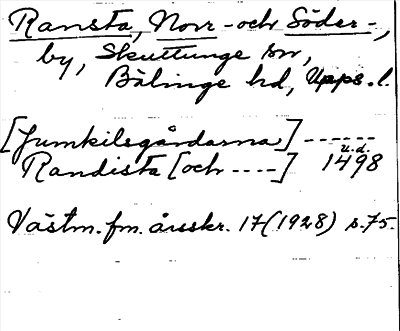 Ransta, Norr- och Söder-,
by, Skuttunge sn,
Bälinge hd, Upps. l.
[Jumkilsgårdarna] ------
u.d.
Randista [och ----] 1498
Västm. fm. årsskr. 17 (1928) s. 75.